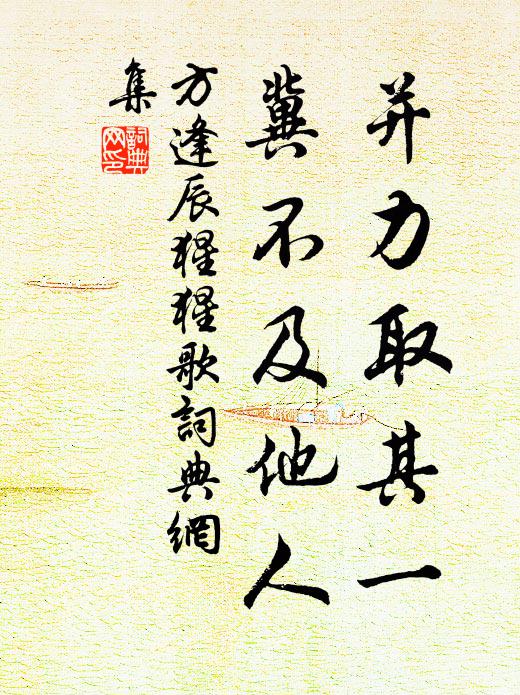 并力取其一
冀不及他人
方逢辰猩猩歌詞典網
集
詞典
网印